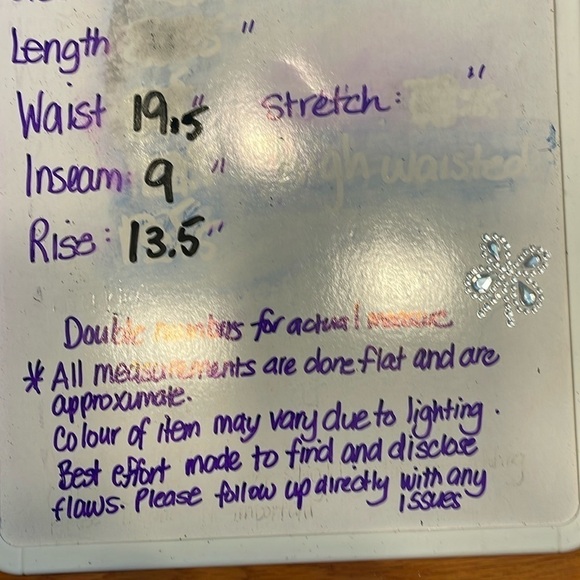 Length "
Waist 19.5" Stretch: "
Inseam: 9 "
Rise: 13.5"
Double numbers for actual measure
* All measurements are done flat and are
approxumate.
Colour of item may vary due to lighting.
Best effort made to find and disclose
flaws. Please follow up directly with any
issues